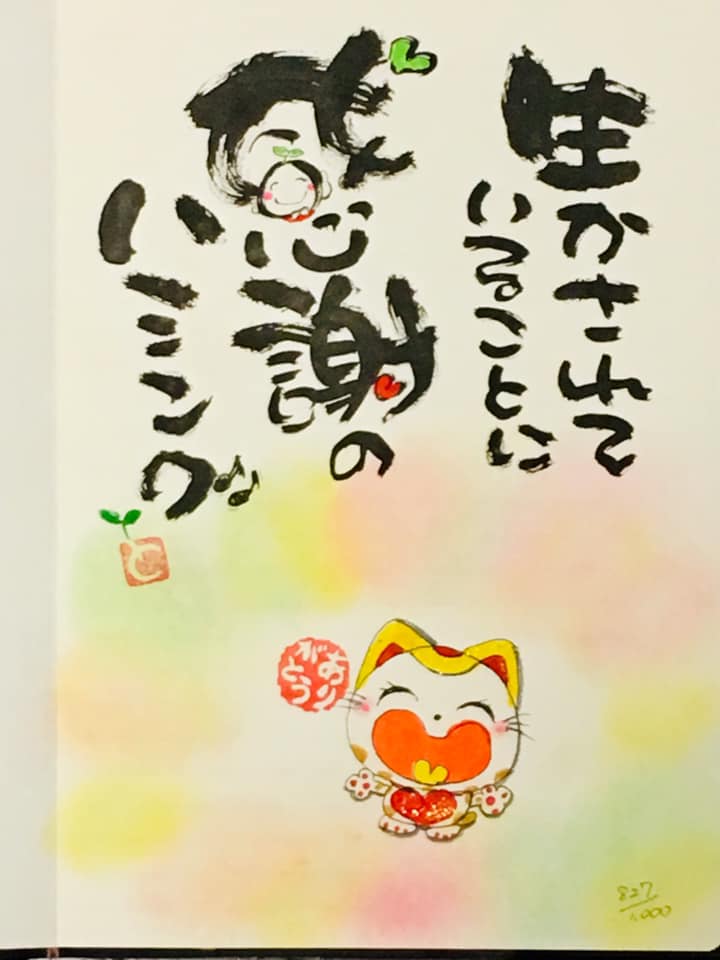 生かされて
いることに
感謝の
ハミング♪
と
あり
がとう
827
1,000